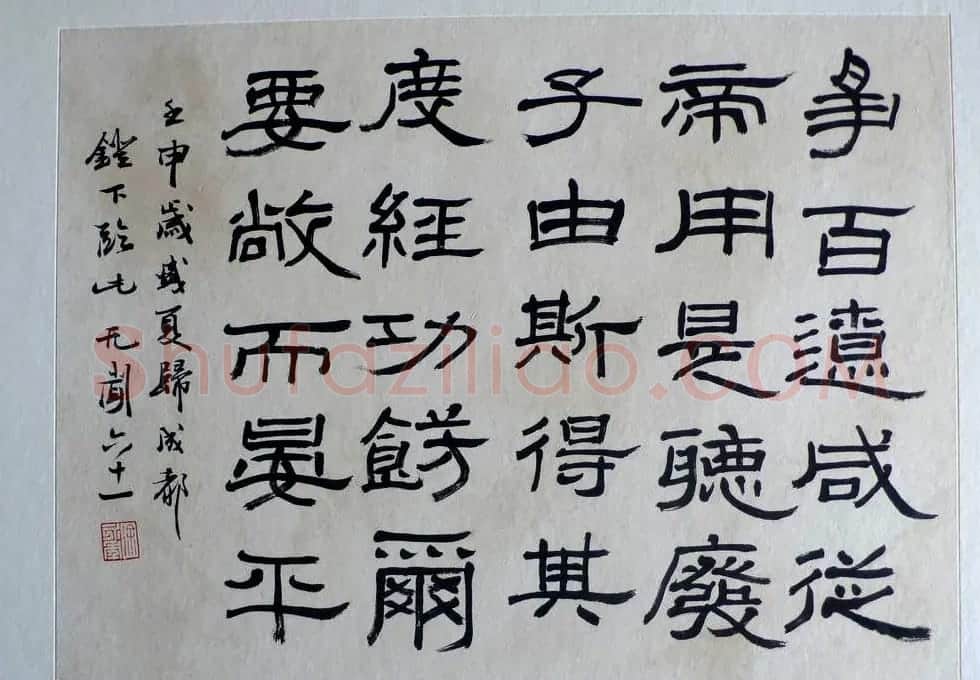 爭百遼咸從
帝用是聽廢
子由斯得其
度經功飭爾
要敞而晏平
壬申歲盛夏歸成都
鐙下臨此无聞六十一
Shufaziliao.com